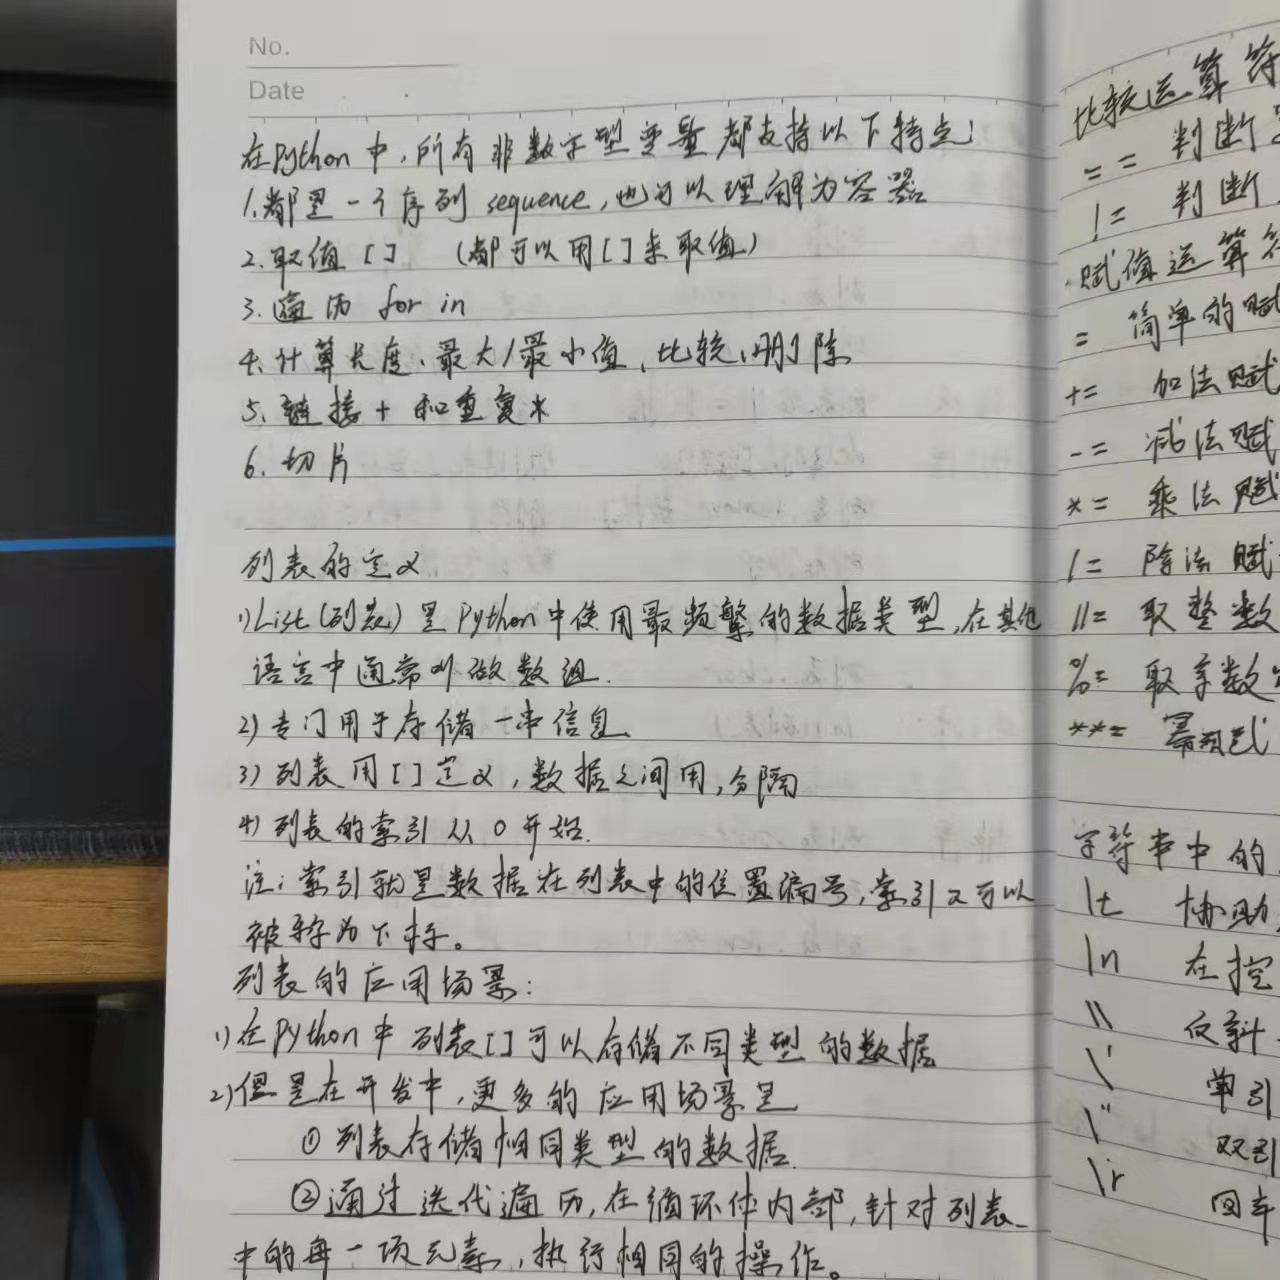 No.
Date
在Python中，所有非数字型变量都支持以下特点：
1.都是一个序列 sequence，也可以理解为容器
2.取值 [ ] （都可以用[ ]来取值）
3.遍历 for in
4.计算长度、最大/最小值、比较、删除
5.链接 + 和重复*
6.切片
列表的定义
1)List(列表)是Python中使用最频繁的数据类型，在其他
语言中通常叫做数组.
2)专门用于存储一串信息
3)列表用[ ]定义，数据之间用,分隔
4)列表的索引从0开始.
注：索引就是数据在列表中的位置编号，索引又可以
被称为下标。
列表的应用场景：
1)在Python中列表[ ]可以存储不同类型的数据
2)但是在开发中，更多的应用场景是
①列表存储相同类型的数据.
②通过迭代遍历，在循环体内部，针对列表
中的每一项元素，执行相同的操作。
比较运算符
== 判断
!= 判断
赋值运算符
= 简单的赋
+= 加法赋
-= 减法赋
*= 乘法赋
/= 除法赋
//= 取整数
%= 取余数
**= 幂
字符串中的
\t 协助
\n 在控
\\ 反斜
\' 单引
\" 双引
\r 回车